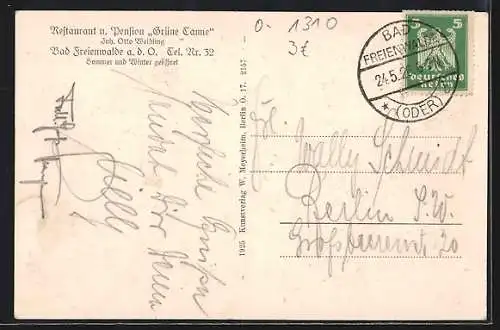 Restaurant u. Pension „Grüne Tanne"
Inh. Otto Weißling
Bad Freienwalde a. d. O. Tel. Nr. 32
Sommer und Winter geöffnet
0- 1310
3€
BAD
FREIENWALDE
24.5.2
* (ODER)
5 5
Deutsches
Reich
Herzliche Grüße
sendet Dir Deine
Helly
1925 Kunstverlag W. Meyerheim, Berlin O. 17. 2157
Frl. Wally Schmidt
Berlin S.W.
Großbeerenstr. 20